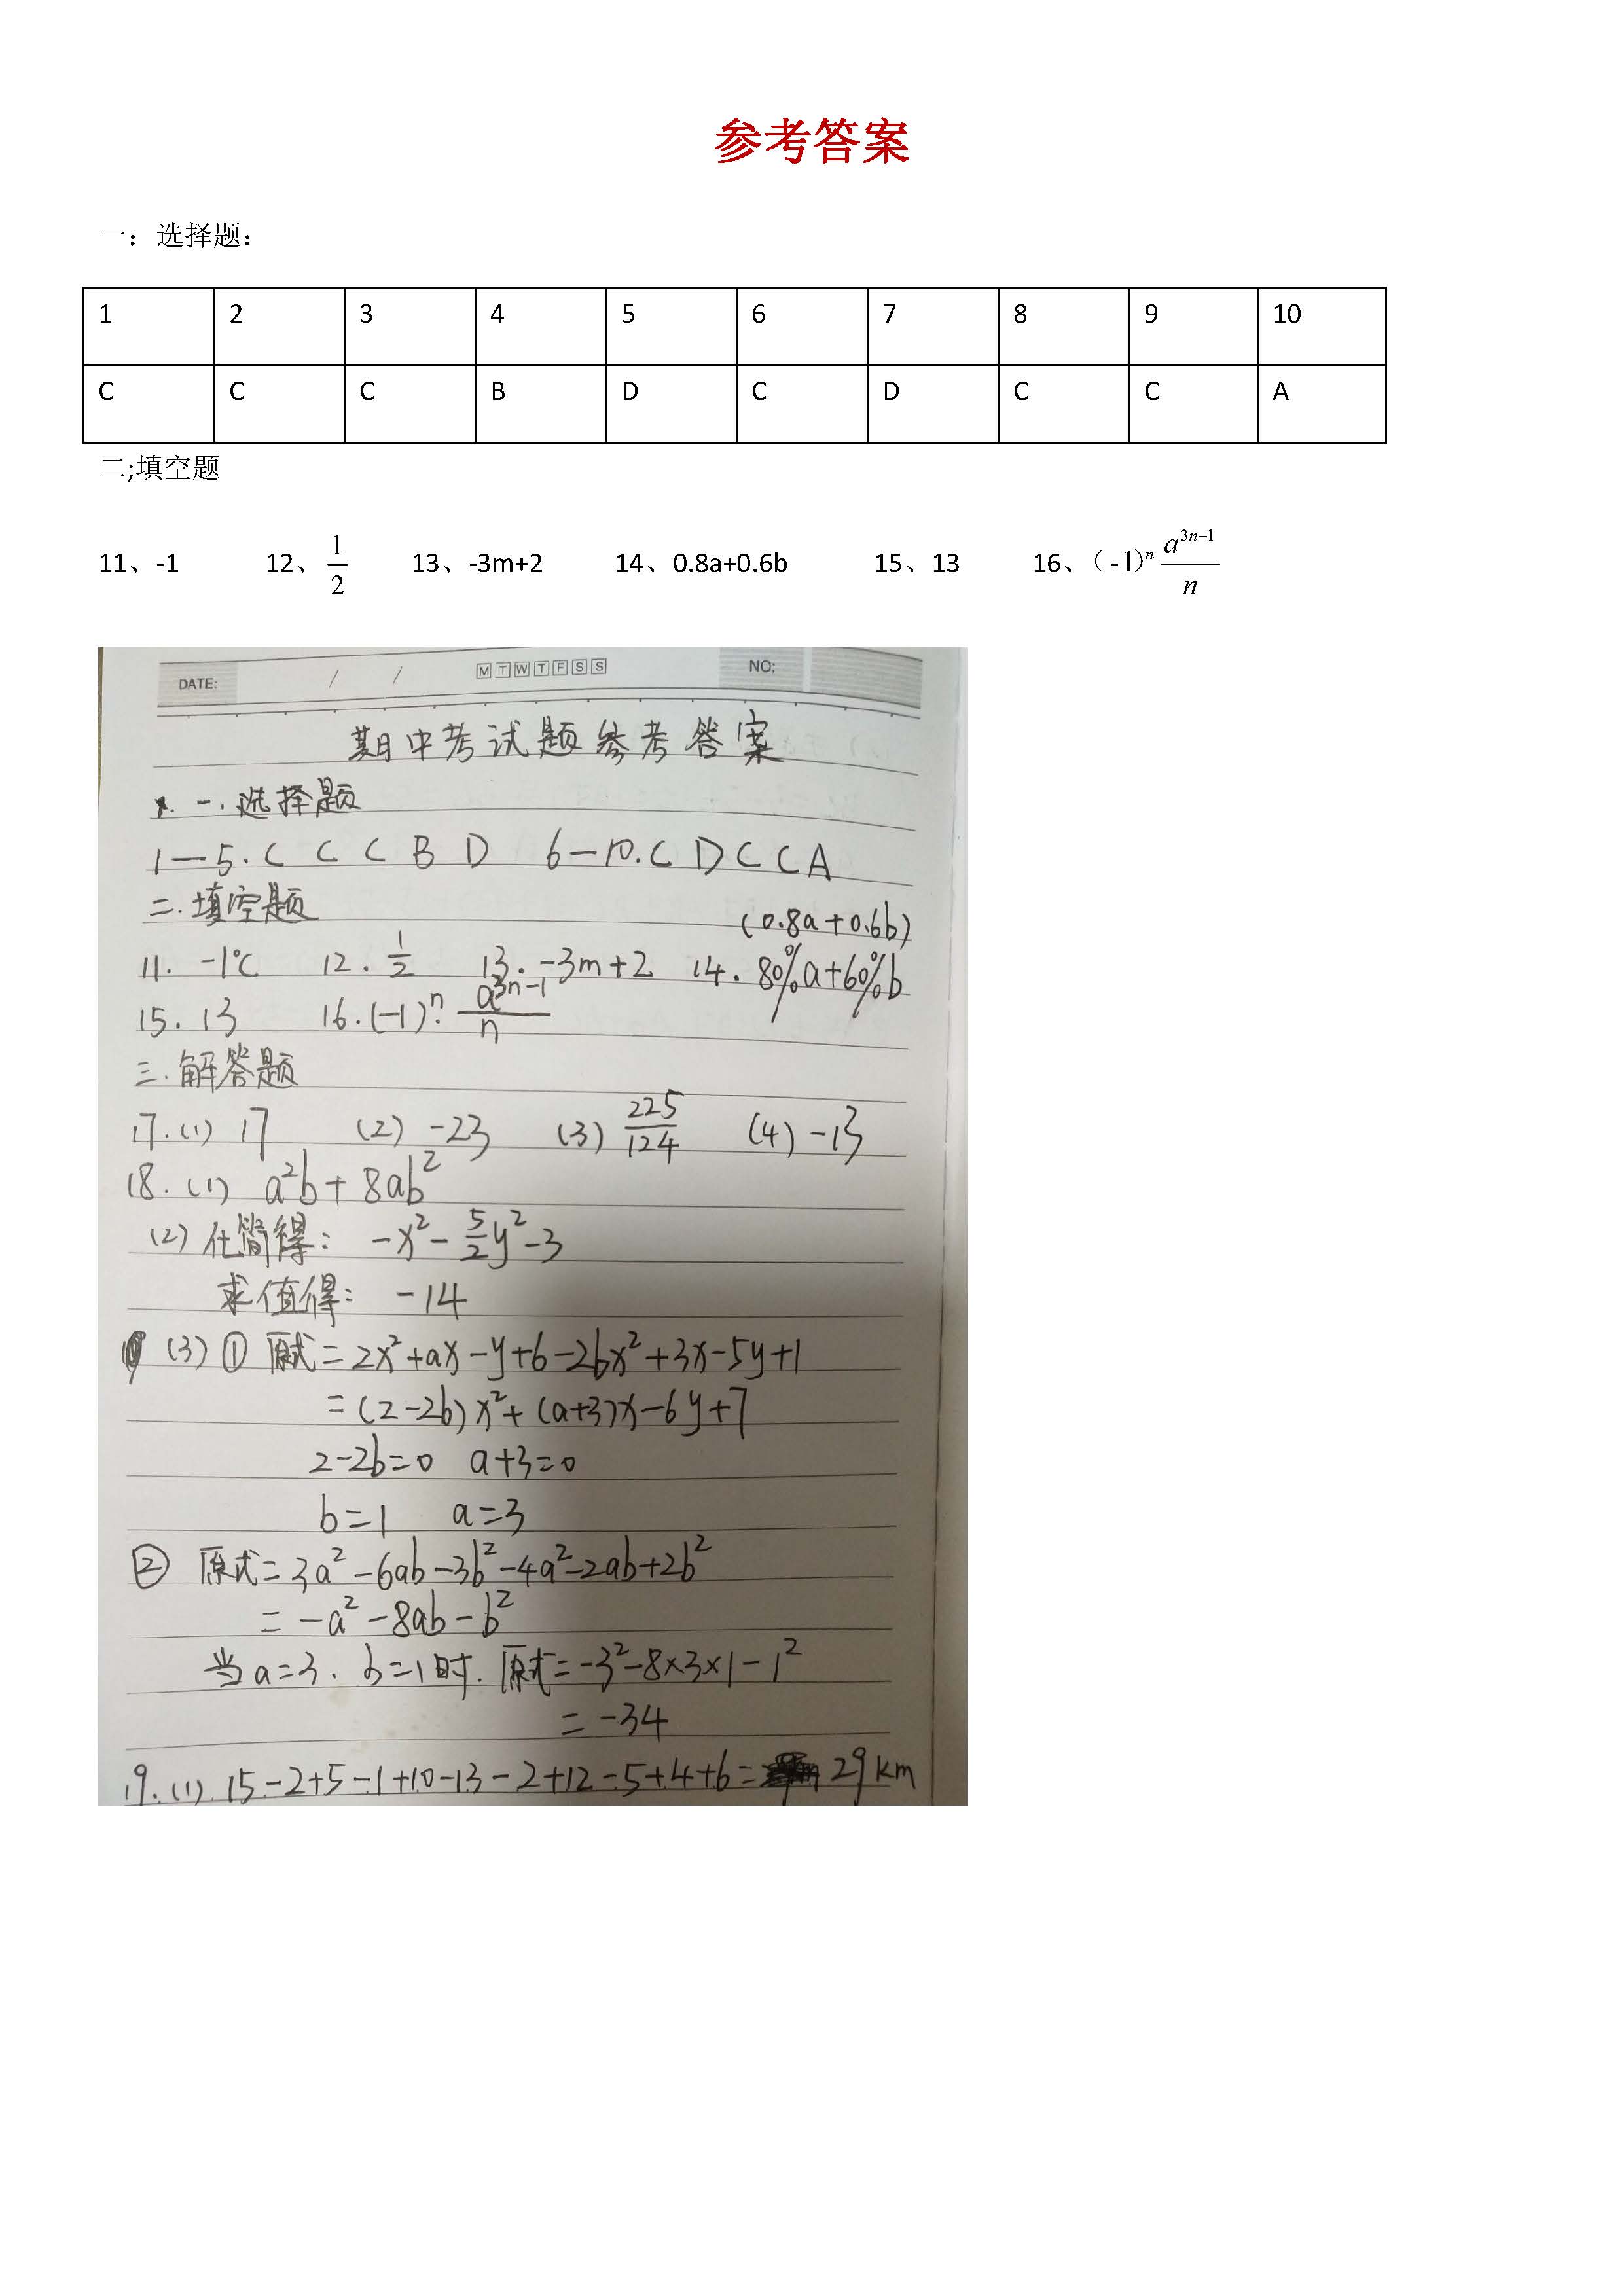 参考答案
一：选择题：
1 2 3 4 5 6 7 8 9 10
C C C B D C D C C A
二;填空题
11、-1 12、1/2 13、-3m+2 14、0.8a+0.6b 15、13 16、（-1)ⁿ a³ⁿ⁻¹/n
DATE: / / M T W T F S S NO:
期中考试题参考答案
一.选择题
1—5.C C C B D 6—10.C D C C A
二.填空题
(0.8a+0.6b)
11. -1℃ 12. 1/2 13. -3m+2 14. 80%a+60%b
15. 13 16.(-1)ⁿ· a³ⁿ⁻¹/n
三.解答题
17.(1) 17 (2) -23 (3) 225/124 (4) -13
18.(1) a²b+8ab²
(2) 化简得: -x²-5/2y²-3
求值得: -14
(3)① 原式=2x²+ax-y+6-2bx²+3x-5y+1
=(2-2b)x²+(a+3)x-6y+7
2-2b=0 a+3=0
b=1 a=3
② 原式=3a²-6ab-3b²-4a²-2ab+2b²
=-a²-8ab-b²
当a=3. b=1时. 原式=-3²-8×3×1-1²
=-34
19.(1) 15-2+5-1+10-13-2+12-5+4+6= 29km